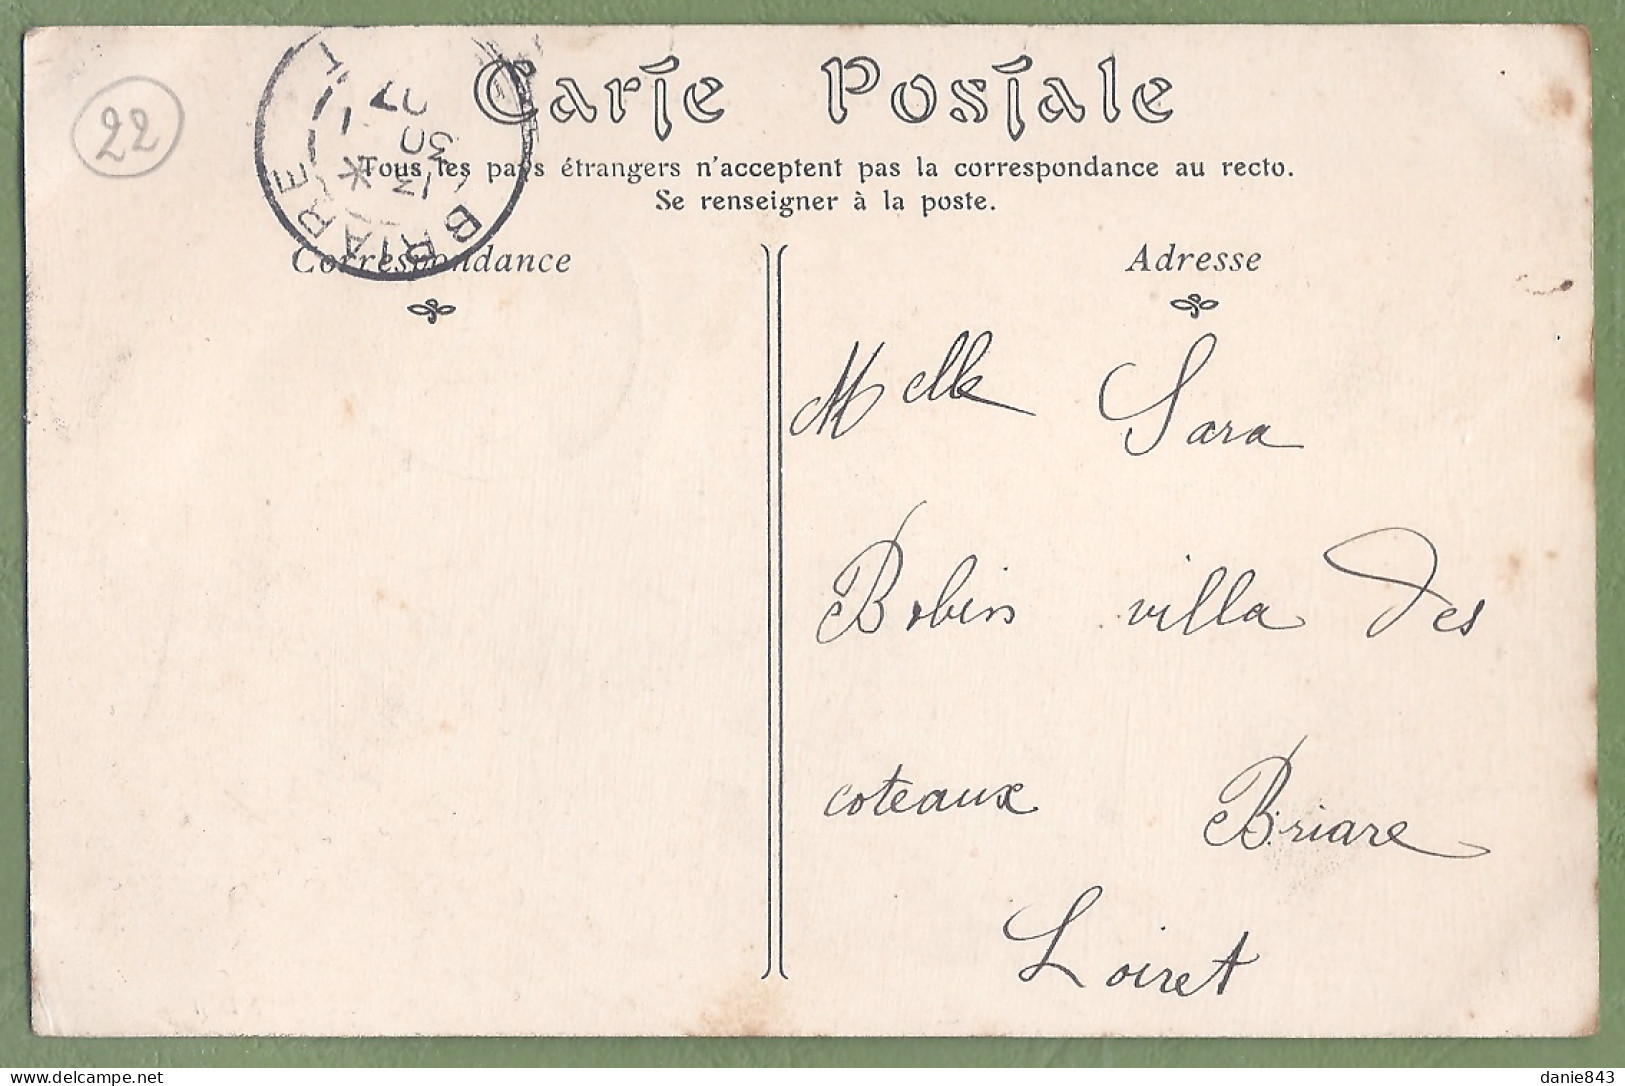 22
Carte Postale
Tous les pays étrangers n'acceptent pas la correspondance au recto.
Se renseigner à la poste.
BRIARE
Correspondance
Adresse
Melle Sara
Bobin villa des
coteaux Briare
Loiret
danie843